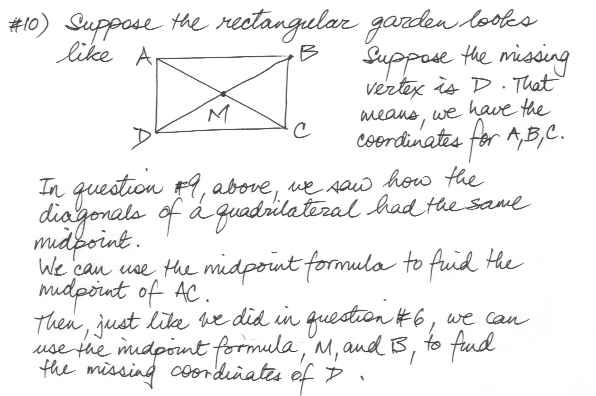 #10) Suppose the rectangular garden looks
like A B
D M C
Suppose the missing
vertex is D. That
means, we have the
coordinates for A, B, C.
In question #9, above, we saw how the
diagonals of a quadrilateral had the same
midpoint.
We can use the midpoint formula to find the
midpoint of AC.
Then, just like we did in question #6, we can
use the midpoint formula, M, and B, to find
the missing coordinates of D.